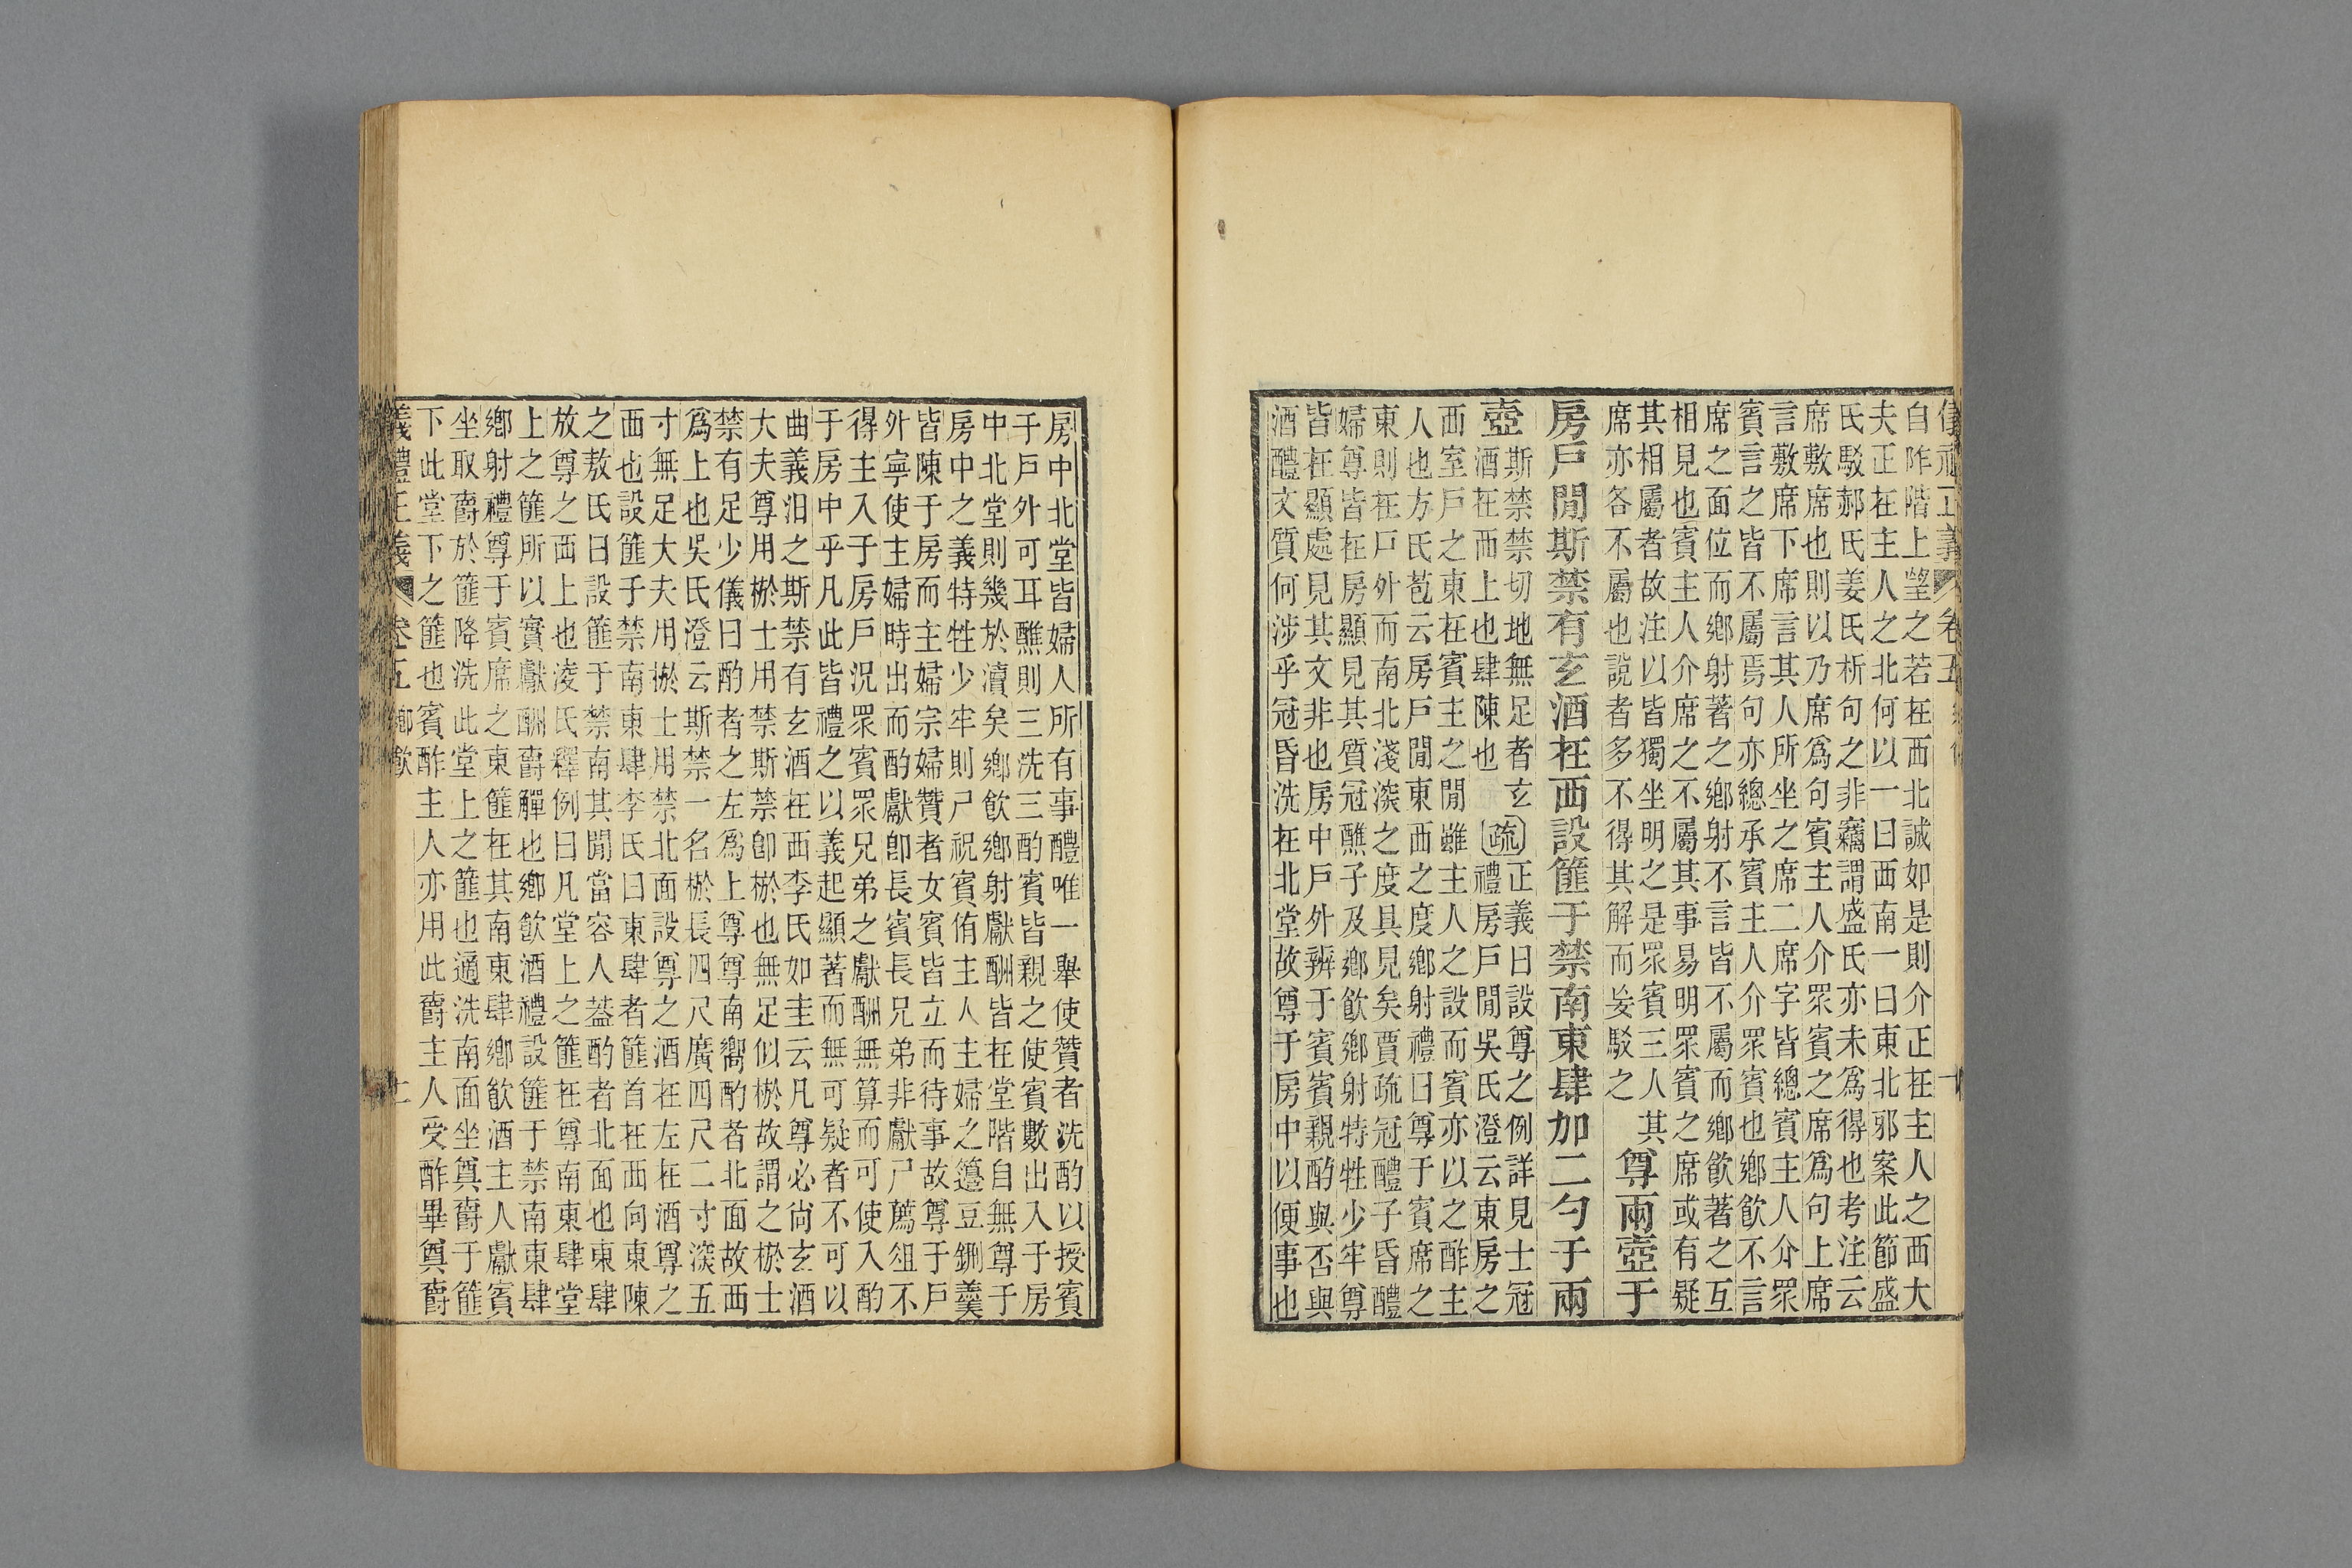 自阼階上望之若在西北誠如是則介正在主人之西大
夫正在主人之北何以一曰西南一曰東北邪案此節盛
氏駁郝氏姜氏析句之非竊謂盛氏亦未爲得也考注云
席敷席也則以乃席爲句賓主人介眾賓之席爲句上席
言敷席下席言其人所坐之席二席字皆總賓主人介眾
賓言之皆不屬焉句亦總承賓主人介眾賓也鄉飮不言
席之面位而鄉射著之鄉射不言皆不屬而鄉飮著之互
相見也賓主人介席之不屬其事易明眾賓之席或有疑
其相屬者故注以皆獨坐明之是眾賓三人其
席亦各不屬也說者多不得其解而妄駁之
尊兩壺于
房戶閒斯禁有玄酒在西設篚于禁南東肆加二勺于兩
壺
斯禁禁切地無足者玄
酒在西上也肆陳也
疏
正義曰設尊之例詳見士冠
禮房戶閒吳氏澄云東房之
西室戶之東在賓主之閒雖主人之設而賓亦以之酢主
人也方氏苞云房戶閒東西之度鄉射禮曰尊于賓席之
東則在戶外而南北淺深之度具見矣賈疏冠醴子昏醴
婦尊皆在房顯見其質冠醮子及鄉飮鄉射特牲少牢尊
皆在顯處見其文非也房中戶外辨于賓賓親酌與否與
酒醴文質何涉乎冠昏洗在北堂故尊于房中以便事也
房中北堂皆婦人所有事醴唯一舉使贊者洗酌以授賓
于戶外可耳醮則三洗三酌賓皆親之使賓數出入于房
中北堂則幾於瀆矣鄉飮鄉射獻酬皆在堂階自無尊于
房中之義特牲少牢則尸祝賓侑主人主婦之籩豆鉶羹
皆陳于房而主婦宗婦贊者女賓皆立而待事故尊于戶
外寧使主婦時出而酌獻卽長賓長兄弟非獻尸薦俎不
得主入于房戶況眾賓眾兄弟之獻酬無算而可使入酌
于房中乎凡此皆禮之以義起顯著而無可疑者不可以
曲義汨之斯禁有玄酒在西李氏如圭云凡尊必尚玄酒
大夫尊用棜士用禁斯禁卽棜也無足似棜故謂之棜士
禁有足少儀曰酌者之左爲上尊尊南嚮酌者北面故西
爲上也吳氏澄云斯禁一名棜長四尺廣四尺二寸深五
寸無足大夫用棜士用禁北面設尊之酒在左在酒尊之
西也設篚于禁南東肆李氏曰東肆者篚首在西向東陳
之敖氏曰設篚于禁南其閒當容人葢酌者北面也東肆
放尊之西上也凌氏釋例曰凡堂上之篚在尊南東肆堂
上之篚所以實獻酬爵觶也鄉飮酒禮設篚于禁南東肆
鄉射禮尊于賓席之東篚在其南東肆鄉飮酒主人獻賓
坐取爵於篚降洗此堂上之篚也適洗南面坐奠爵于篚
下此堂下之篚也賓酢主人亦用此爵主人受酢畢奠爵
義禮正義 卷五 鄉飮